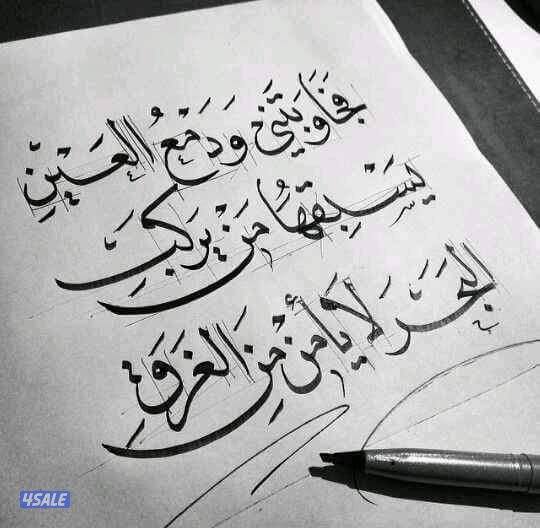 فَجَاوَبَتْنِي وَدَمْعُ العَيْنِ
يَسْبِقُهَا مَنْ يَركَبَ
البَحْرَ لَا يَأمن مِنَ الغَرَقِ
4SALE